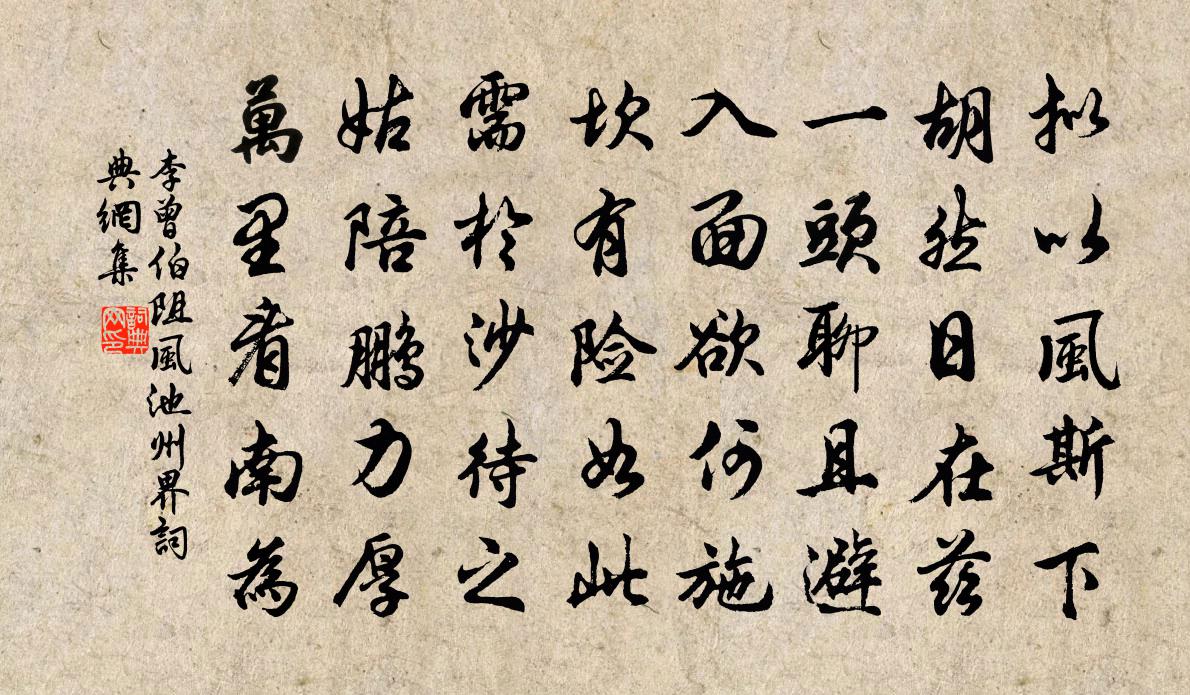 拟以風斯下
胡然日在茲
一頭聊且避
入面欲何施
坎有险如此
需於沙待之
姑陪鹏力厚
萬里看南為
李曾伯阻風池州界詞
典網集
詞典
网印